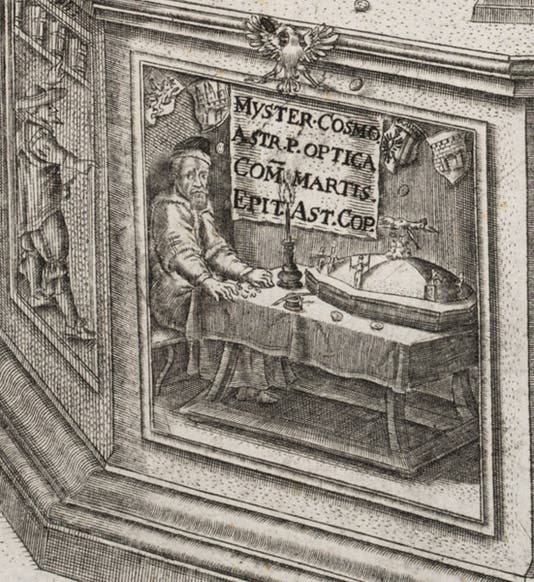 MYSTER·COSMO
ASTR.P.OPTICA
COM̄ MARTIS.
EPIT AST.COP.